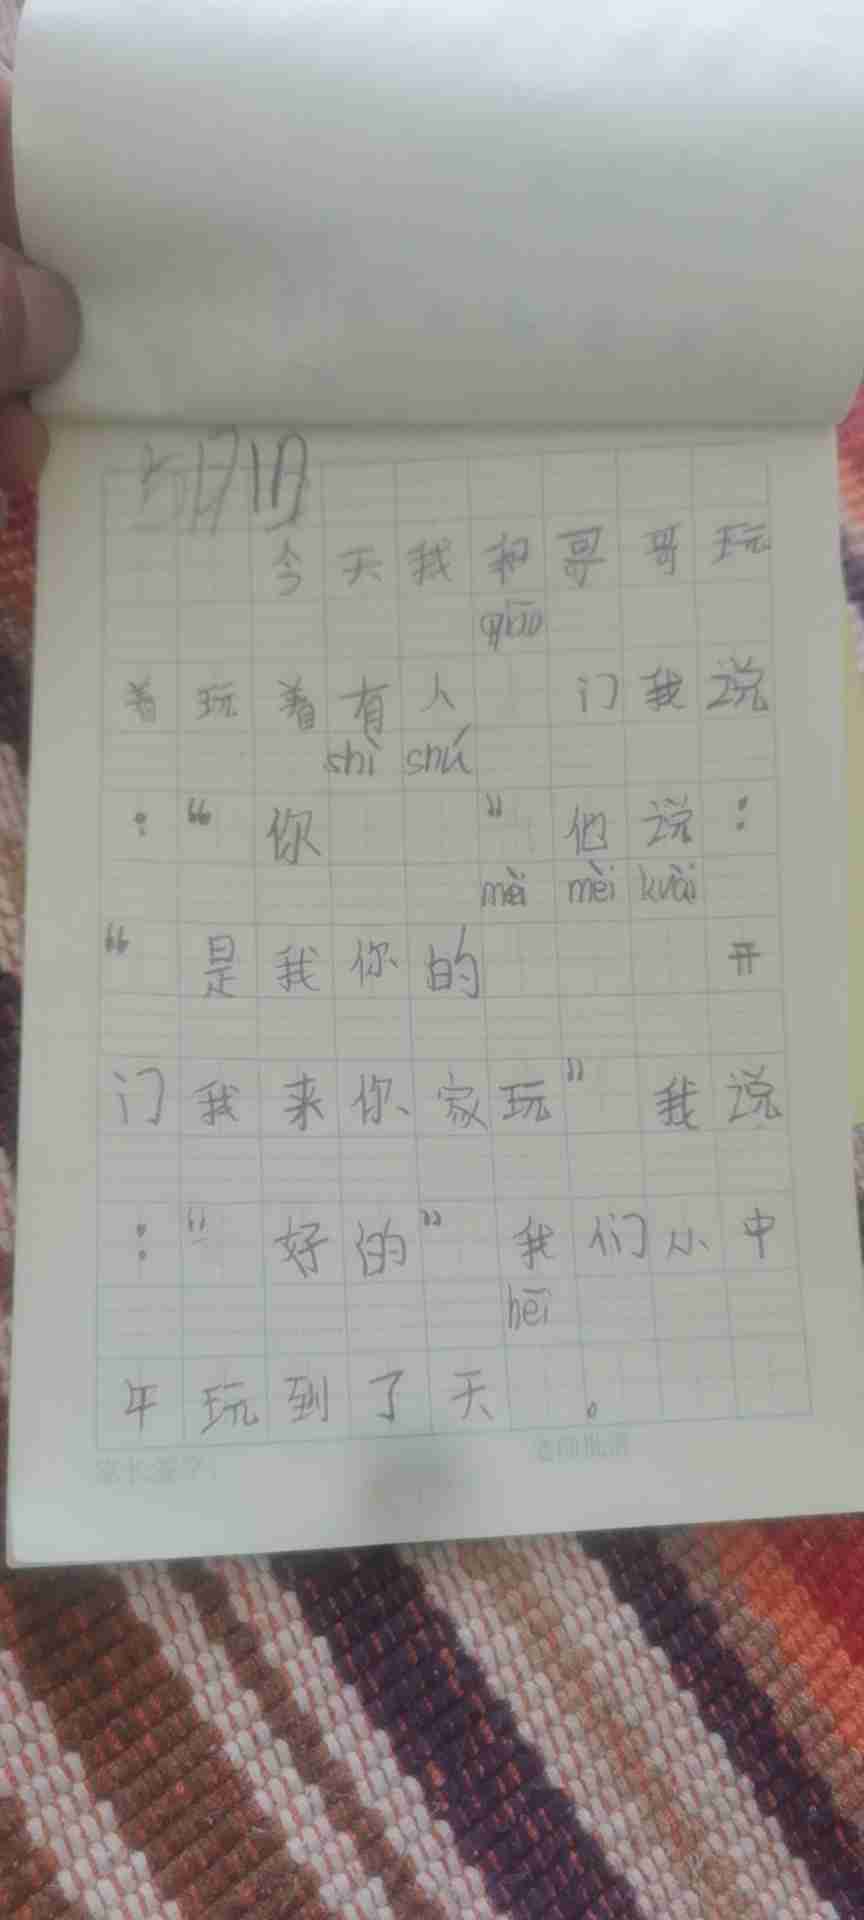 今天我和哥哥玩
qiāo
着玩着有人 门我说
shì shú
：“你 ”他说：
mèi mèi kuài
“是我你的 开
门我来你家玩”我说
：“好的”我们从中
hēi
午玩到了天 。
家长签字：